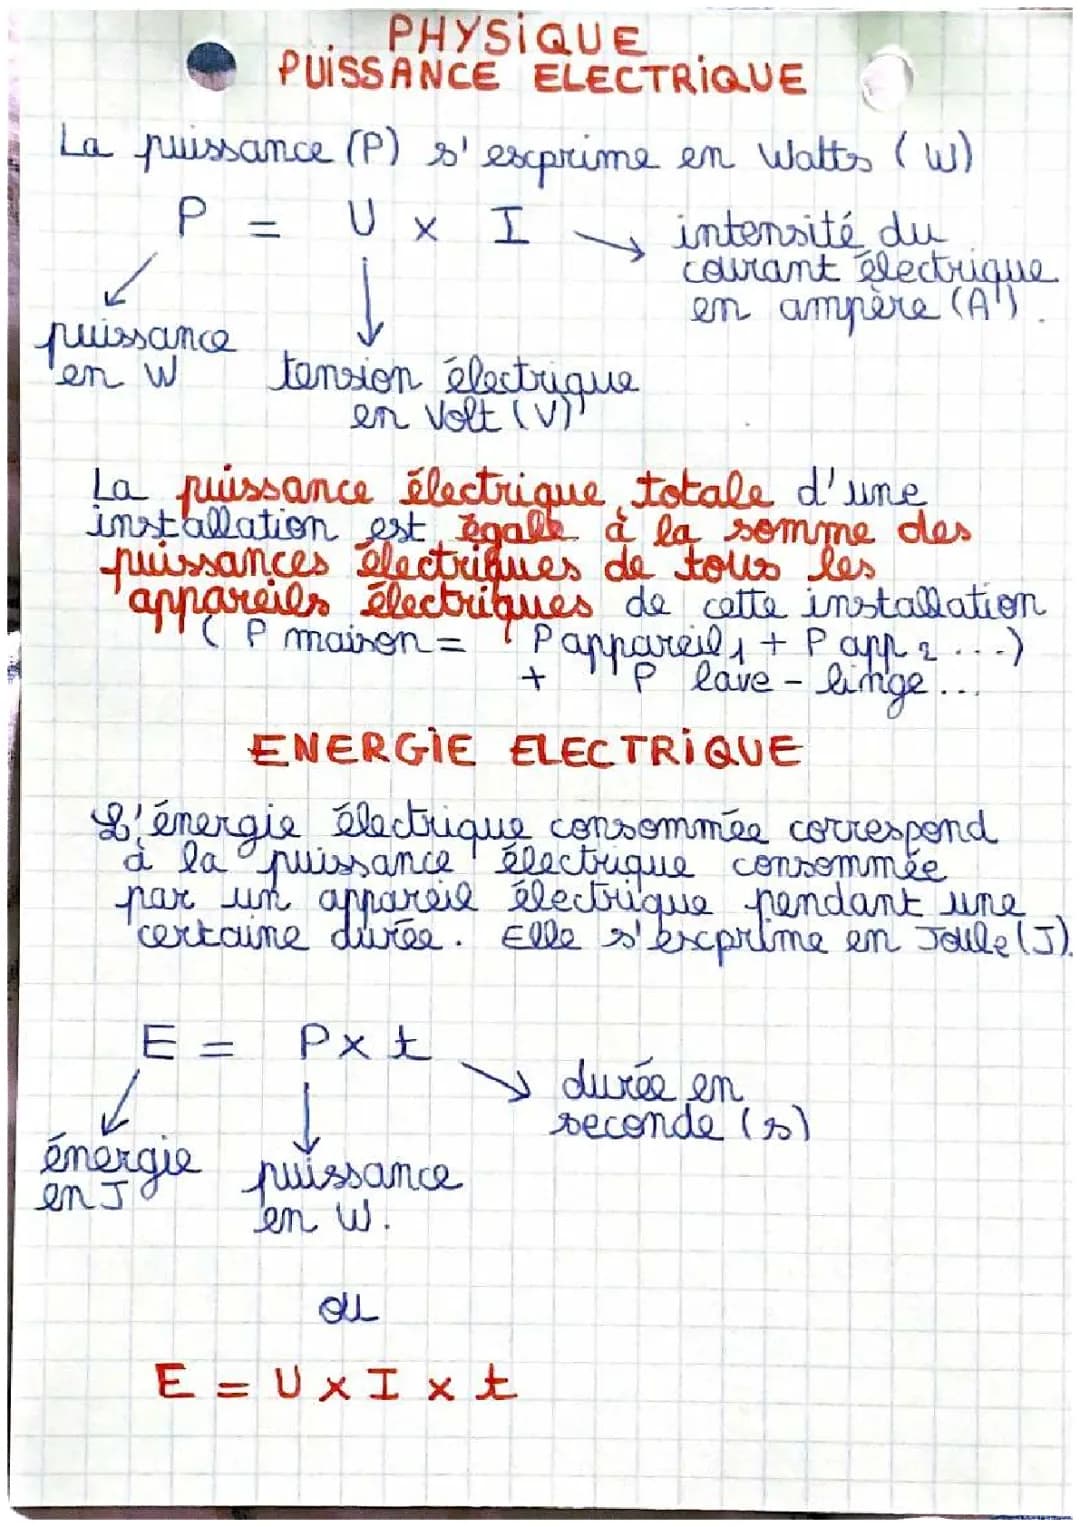 PHYSIQUE
PUISSANCE ELECTRIQUE
La puissance (P) s'exprime en Watts (W)
P = U x I
intensité du
courant électrique
en ampère (A).
puissance
en W
tension électrique
en Volt (V)
La puissance électrique totale d'une
installation est égale à la somme des
puissances électriques de tous les
appareils électriques de cette installation
(P maison = P appareil 1 + P app 2 ...)
+ P lave-linge...
ENERGIE ELECTRIQUE
L'énergie électrique consommée correspond
à la puissance électrique consommée
par un appareil électrique pendant une
certaine durée. Elle s'exprime en Joule (J).
E = P x t
durée en
seconde (s)
énergie
en J
puissance
en W.
ou
E = U x I x t